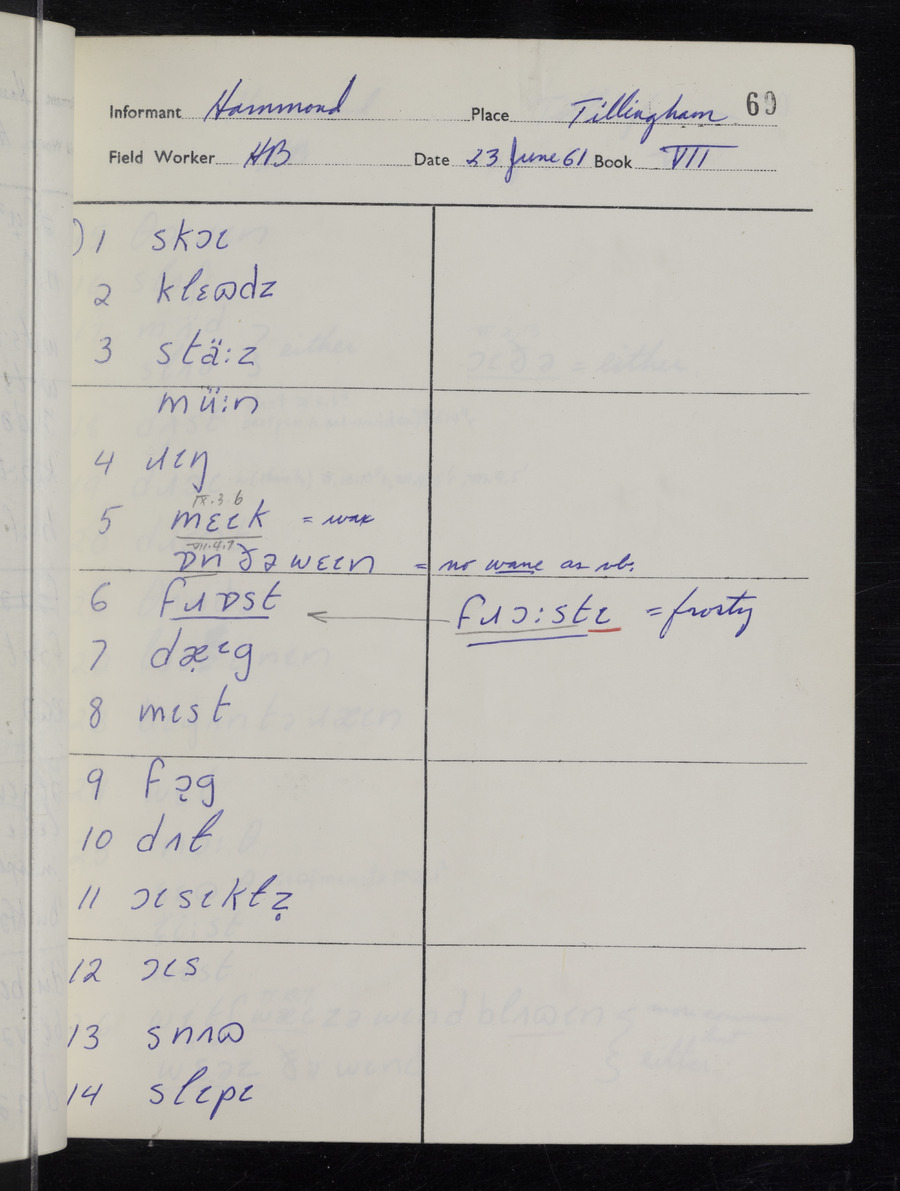 Informant Hammond Place Tillingham 69
Field Worker HB Date 23 June 61 Book VII
) 1 skɔɩ
2 klɛɷdz
3 stä:z
mü:n
4 ɹɩŋ
IX.3.6
5 mɛɩk = wax
VII.4.7
ɒn ðə wɛɩn = no wane as vb.
6 fɹɒst ← fɹɔ:stɩ = frosty
7 dæ̣ᶦg
8 mɩst
9 fɔ̜g
10 dʌt
11 ɔɩsɩktz̥
12 ɔɩs
13 snʌɷ
14 slɩpɩ